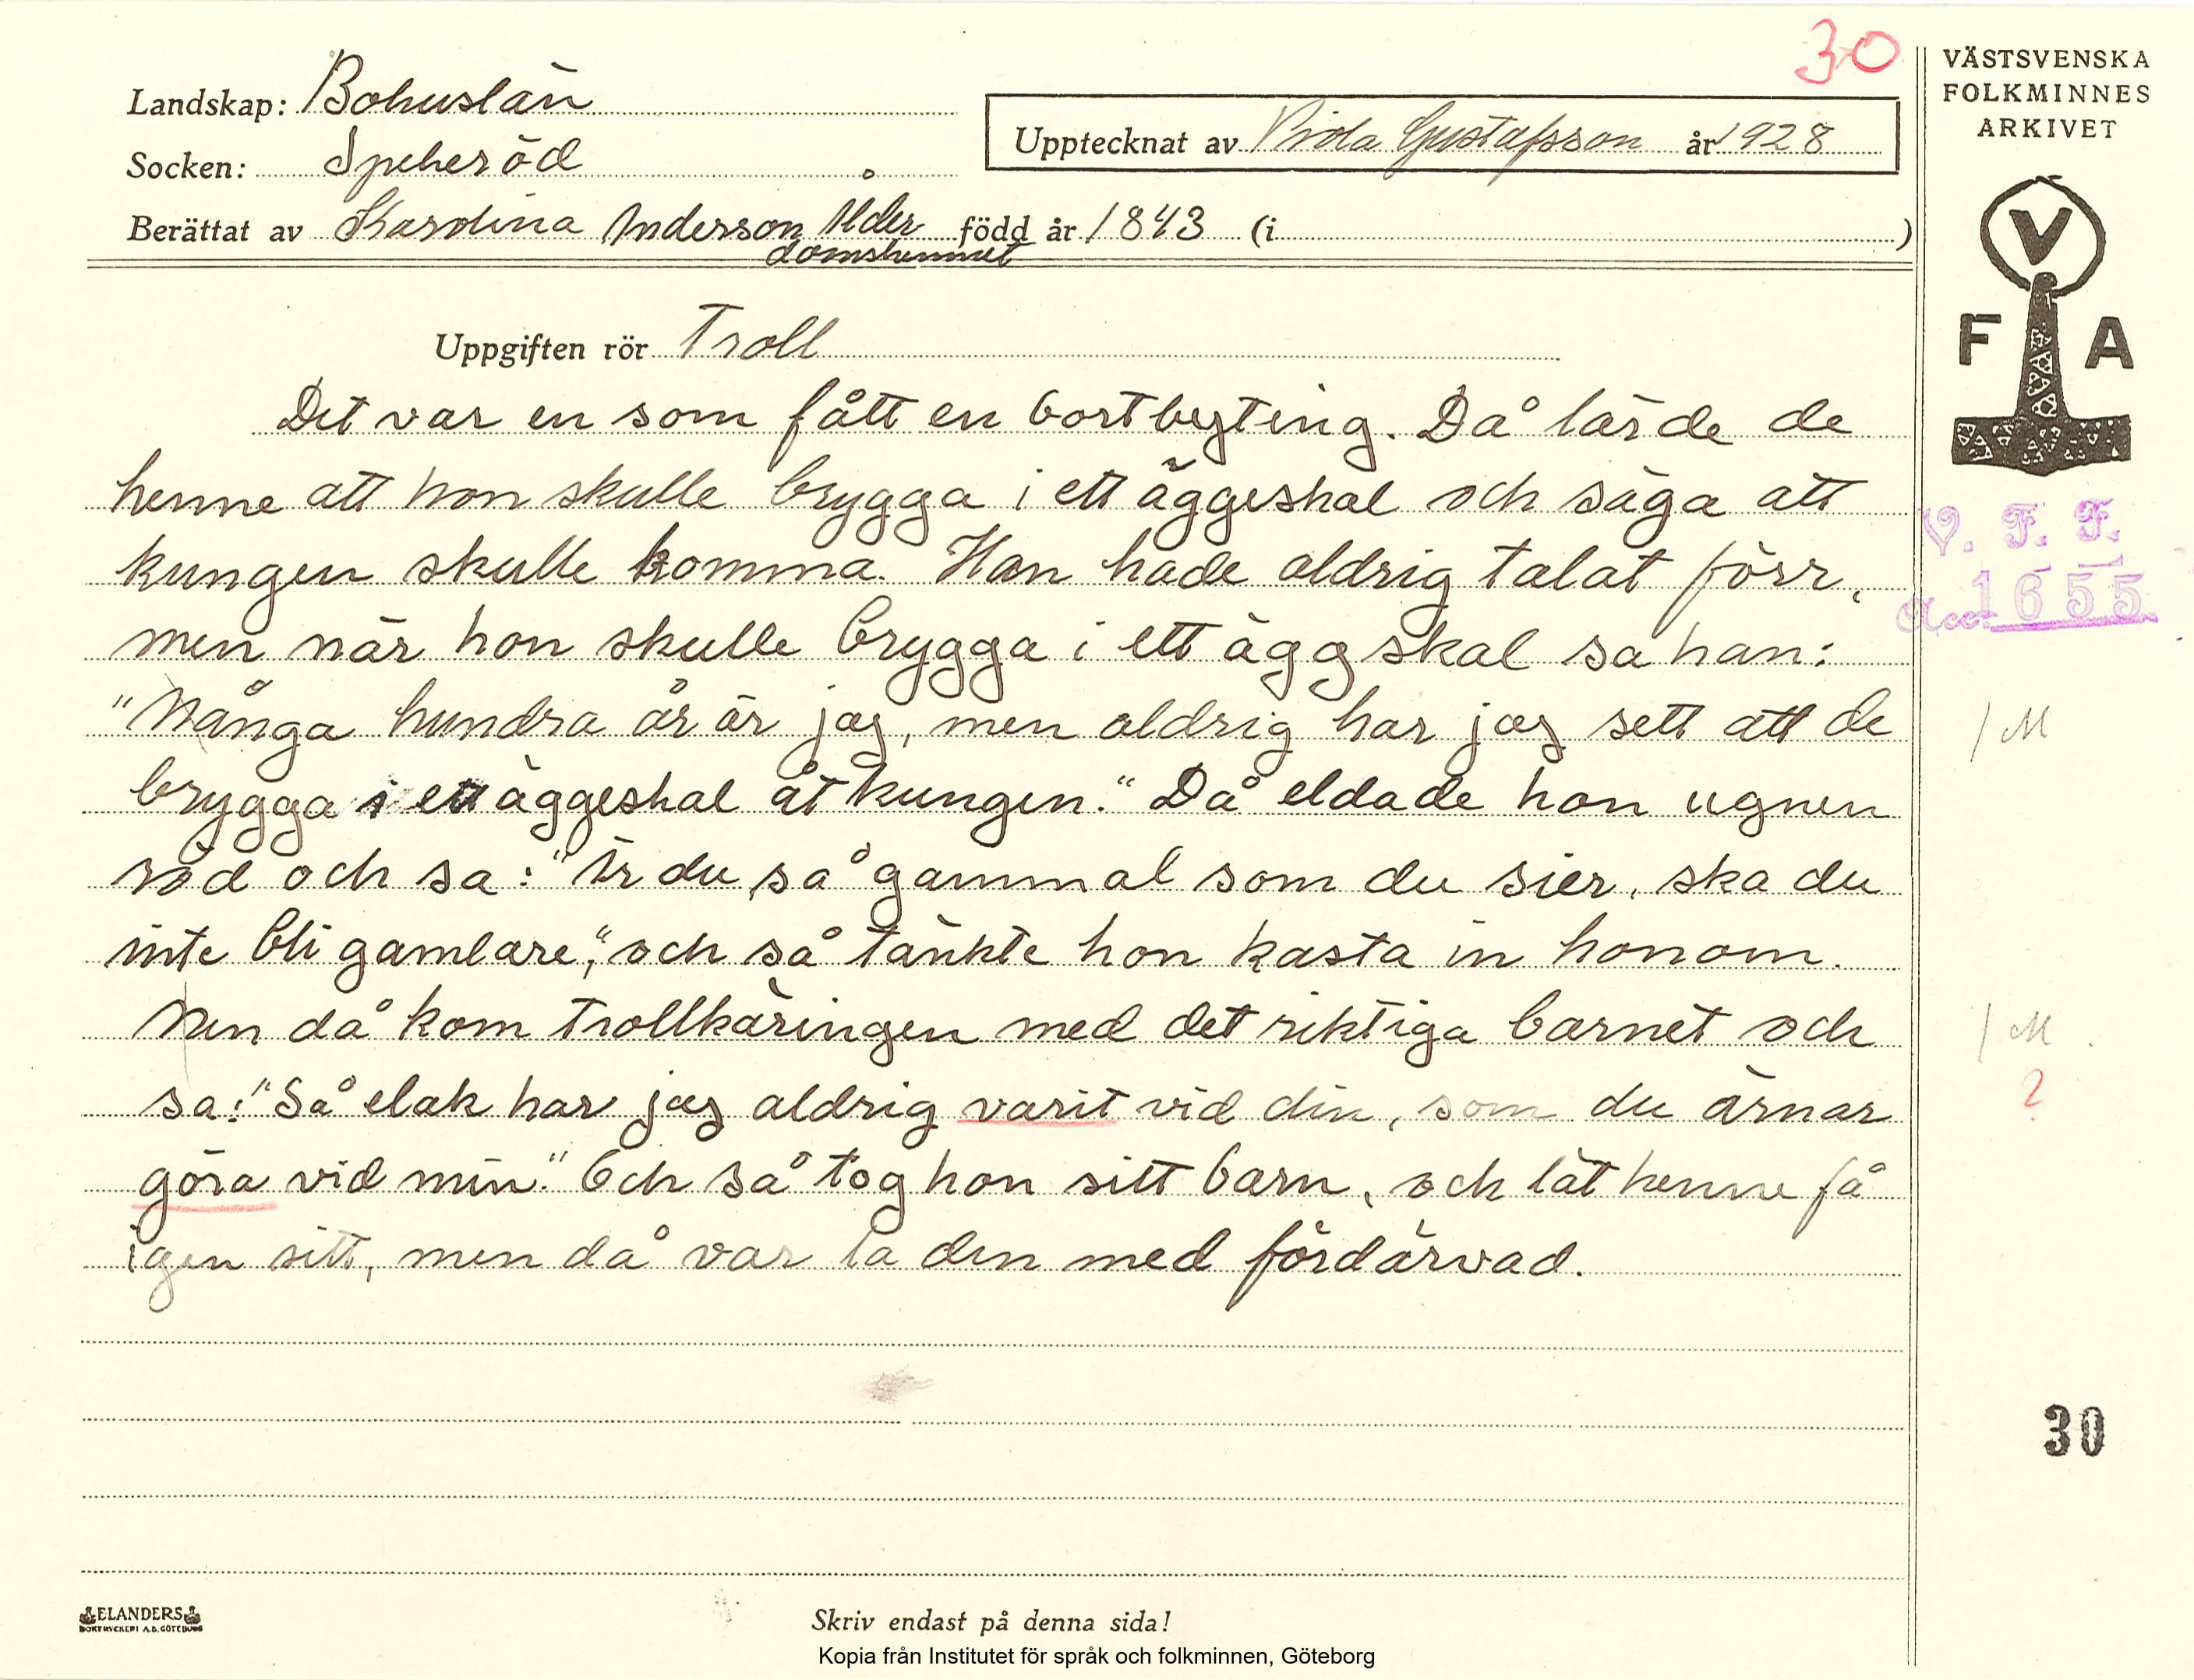 30
VÄSTSVENSKA
FOLKMINNES
ARKIVET
Landskap: Bohuslän
Upptecknat av Viola Gustafsson år 1928
Socken: Spekeröd
Berättat av Karolina Andersson Ålder född år 1843 (i )
domshemmet
V
F A
Uppgiften rör Troll
Det var en som fått en bortbyting. Då lärde de
henne att hon skulle brygga i ett äggeskal och säga att
V. F. F.
kungen skulle komma. Han hade aldrig talat förr,
Acc. 1655
men när hon skulle brygga i ett äggskal sa han:
"Många hundra år är jag, men aldrig har jag sett att de
/ M
brygga i ett äggeskal åt kungen." Då eldade hon ugnen
röd och sa: "Är du så gammal som du sier, ska du
inte bli gamlare," och så tänkte hon kasta in honom.
Men då kom trollkäringen med det riktiga barnet och
/ M
sa: "Så elak har jag aldrig varit vid din, som du ärnar
?
göra vid min." Och så tog hon sitt barn, och lät henne få
igen sitt, men då var la den med fördärvad.
30
ELANDERS
BOKTRYCKERI A.B. GÖTEBORG
Skriv endast på denna sida!
Kopia från Institutet för språk och folkminnen, Göteborg